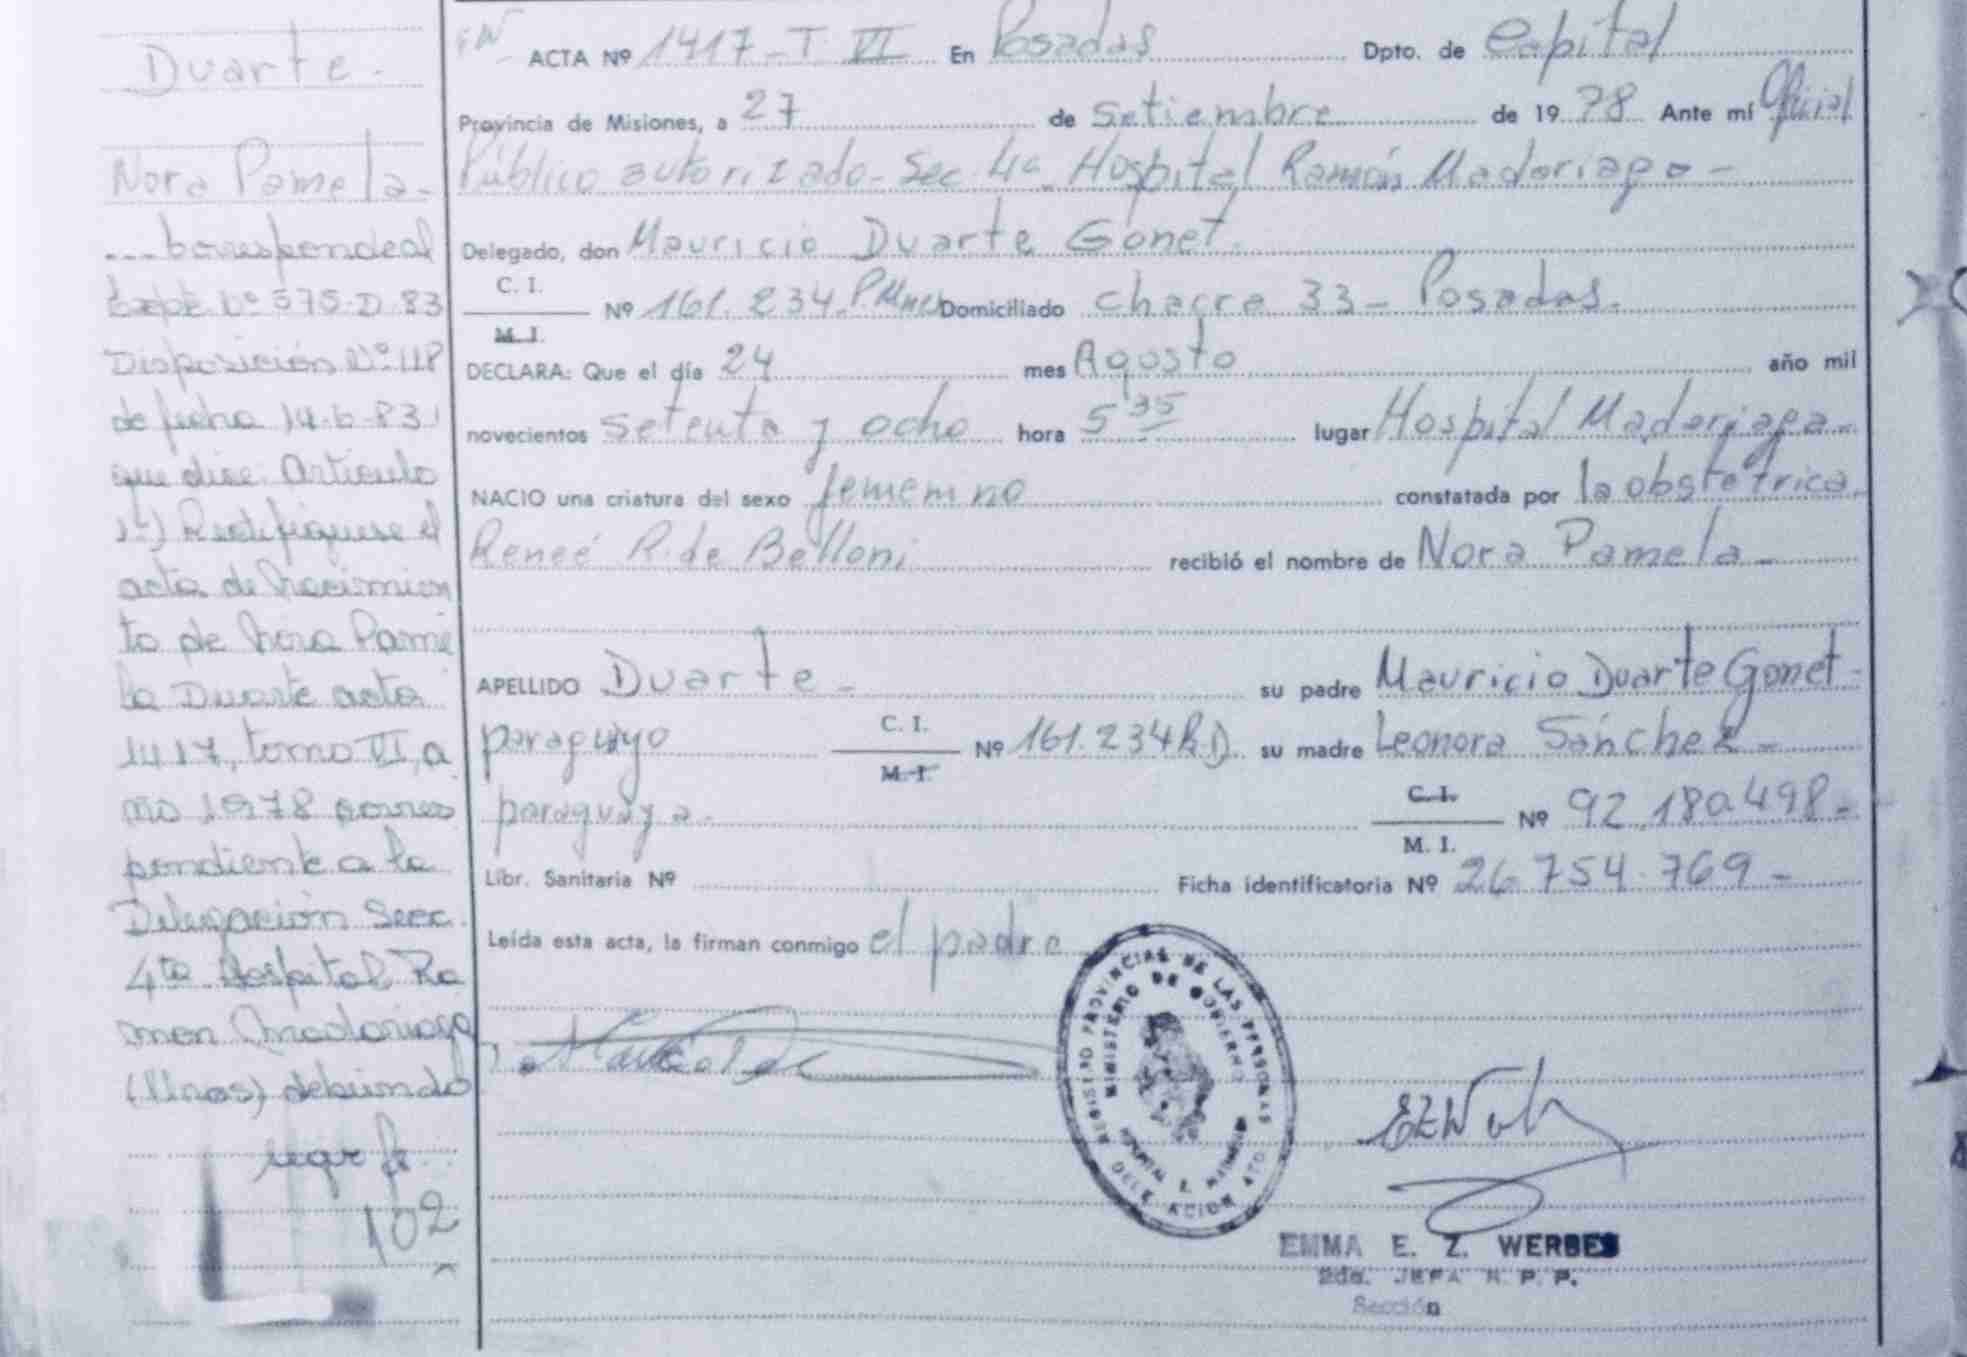 Duarte.
Nora Pamela.
... Correspondeal
Expte. Nº 575-D-83
Disposición Nº 118
de fecha 14-6-83,
que dice: Articulo
1º) Rectifiquese el
acta de Nacimien
to de Nora Pame
la Duarte acta
1417, tomo VI, a
ño 1978 corres
pondiente a la
Delegación Secc.
4ta. Hospital Ra
mon Madariaga
(Mnes) debiendo
sigue fs.
102
ACTA Nº 1417 - T. VI En Posadas Dpto. de Capital
Provincia de Misiones, a 27 de Setiembre de 1978 Ante mí Oficial
Público autorizado - Sec. 4ª. Hospital Ramón Madariaga -
Delegado, don Mauricio Duarte Gonet.
C. I.
M. I.
Nº 161.234. P. Mnes Domiciliado Chacra 33 - Posadas.
DECLARA: Que el día 24 mes Agosto año mil
novecientos setenta y ocho hora 5 35 lugar Hospital Madariaga -
NACIO una criatura del sexo femenino constatada por la obstétrica
Reneé R. de Belloni recibió el nombre de Nora Pamela -
APELLIDO Duarte - su padre Mauricio Duarte Gonet -
paraguayo C. I. M. I. Nº 161.234 su madre Leonora Sánchez -
paraguaya. C. I. M. I. Nº 92.180.498 -
Libr. Sanitaria Nº Ficha identificatoria Nº 26.754.769 -
Leída esta acta, la firman conmigo el padre
REGISTRO PROVINCIAL DE LAS PERSONAS
MINISTERIO DE GOBIERNO
HOSPITAL R. MADARIAGA
DELEGACION 4TO.
EMMA E. Z. WERBES
2da. JEFA R. P. P.
Sección